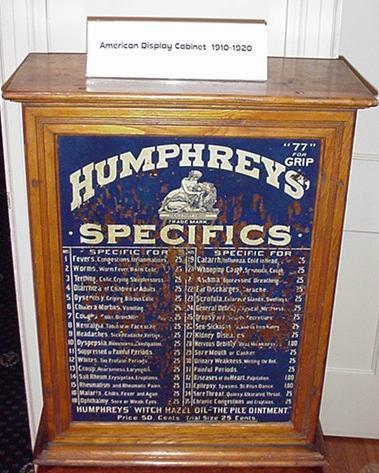 American Display Cabinet 1910-1920
"77"
FOR
GRIP
HUMPHREYS'
TRADE MARK
SPECIFICS
SPECIFIC FOR
SPECIFIC FOR
1 Fevers, Congestions, Inflammations 25
2 Worms, Worm Fever, Worm Colic 25
3 Teething, Colic, Crying, Sleeplessness 25
4 Diarrhea of Children or Adults 25
5 Dysentery, Griping, Bilious Colic 25
6 Cholera Morbus, Vomiting 25
7 Coughs, Colds, Bronchitis 25
8 Neuralgia, Toothache, Faceache 25
9 Headaches, Sick Headache, Vertigo 25
10 Dyspepsia, Biliousness, Constipation 25
11 Suppressed or Painful Periods 25
12 Whites, Too Profuse Periods 25
13 Croup, Hoarseness, Laryngitis 25
14 Salt Rheum, Erysipelas, Eruptions 25
15 Rheumatism and Rheumatic Pains 25
16 Malaria, Chills, Fever and Ague 25
18 Ophthalmy, Sore or Weak Eyes 25
19 Catarrh, Influenza, Cold in Head 25
20 Whooping Cough, Spasmodic Cough 25
21 Asthma, Oppressed Breathing 25
22 Ear Discharges, Earache 25
23 Scrofula, Enlarged Glands, Swellings 25
24 General Debility, Physical Weakness 25
25 Dropsy, Secretions 25
26 Sea-Sickness 25
27 Kidney Disease 25
28 Nervous Debility 1.00
29 Sore Mouth or Canker 25
30 Urinary Weakness, Wetting the Bed 25
31 Painful Periods 25
32 Diseases of the Heart, Palpitation 1.00
33 Epilepsy, Spasms, St. Vitus Dance 1.00
34 Sore Throat, Quinsy, Ulcerated Throat 25
35 Chronic Congestions and Eruptions 25
HUMPHREYS' WITCH HAZEL OIL-"THE PILE OINTMENT."
Price 50 Cents. Trial Size 25 Cents.